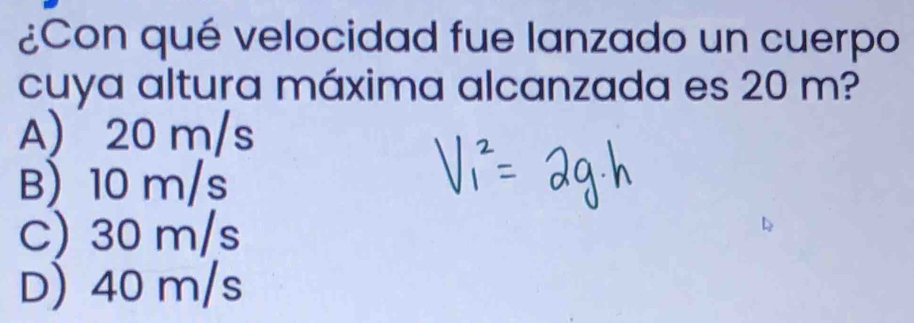 ¿Con qué velocidad fue lanzado un cuerpo
cuya altura máxima alcanzada es 20 m?
A) 20 m/s
B) 10 m/s
C) 30 m/s
D) 40 m/s
V₁² = 2g.h